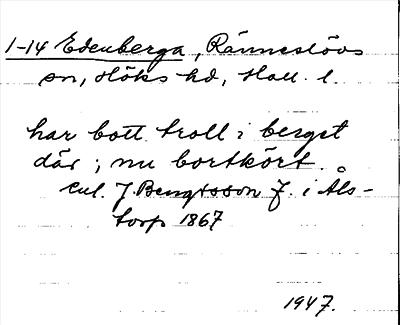 1-14 Edenberga, Ränneslövs
sn, Höks hd, Hall. l.
har bott troll i berget
där; nu bortkört.
Enl. J. Bengtsson f. i Åls-
torp 1867
1947.